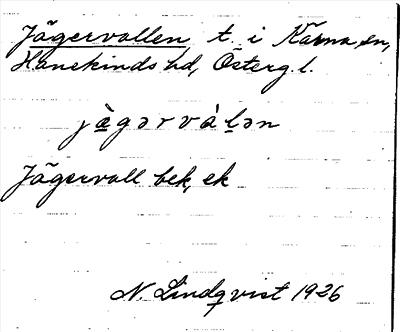 Jägervallen t. i Kärna sn,
Hanekinds hd, Österg. l.
jä̀gərvàlən
Jägervall bek, ek
N. Lindqvist 1926